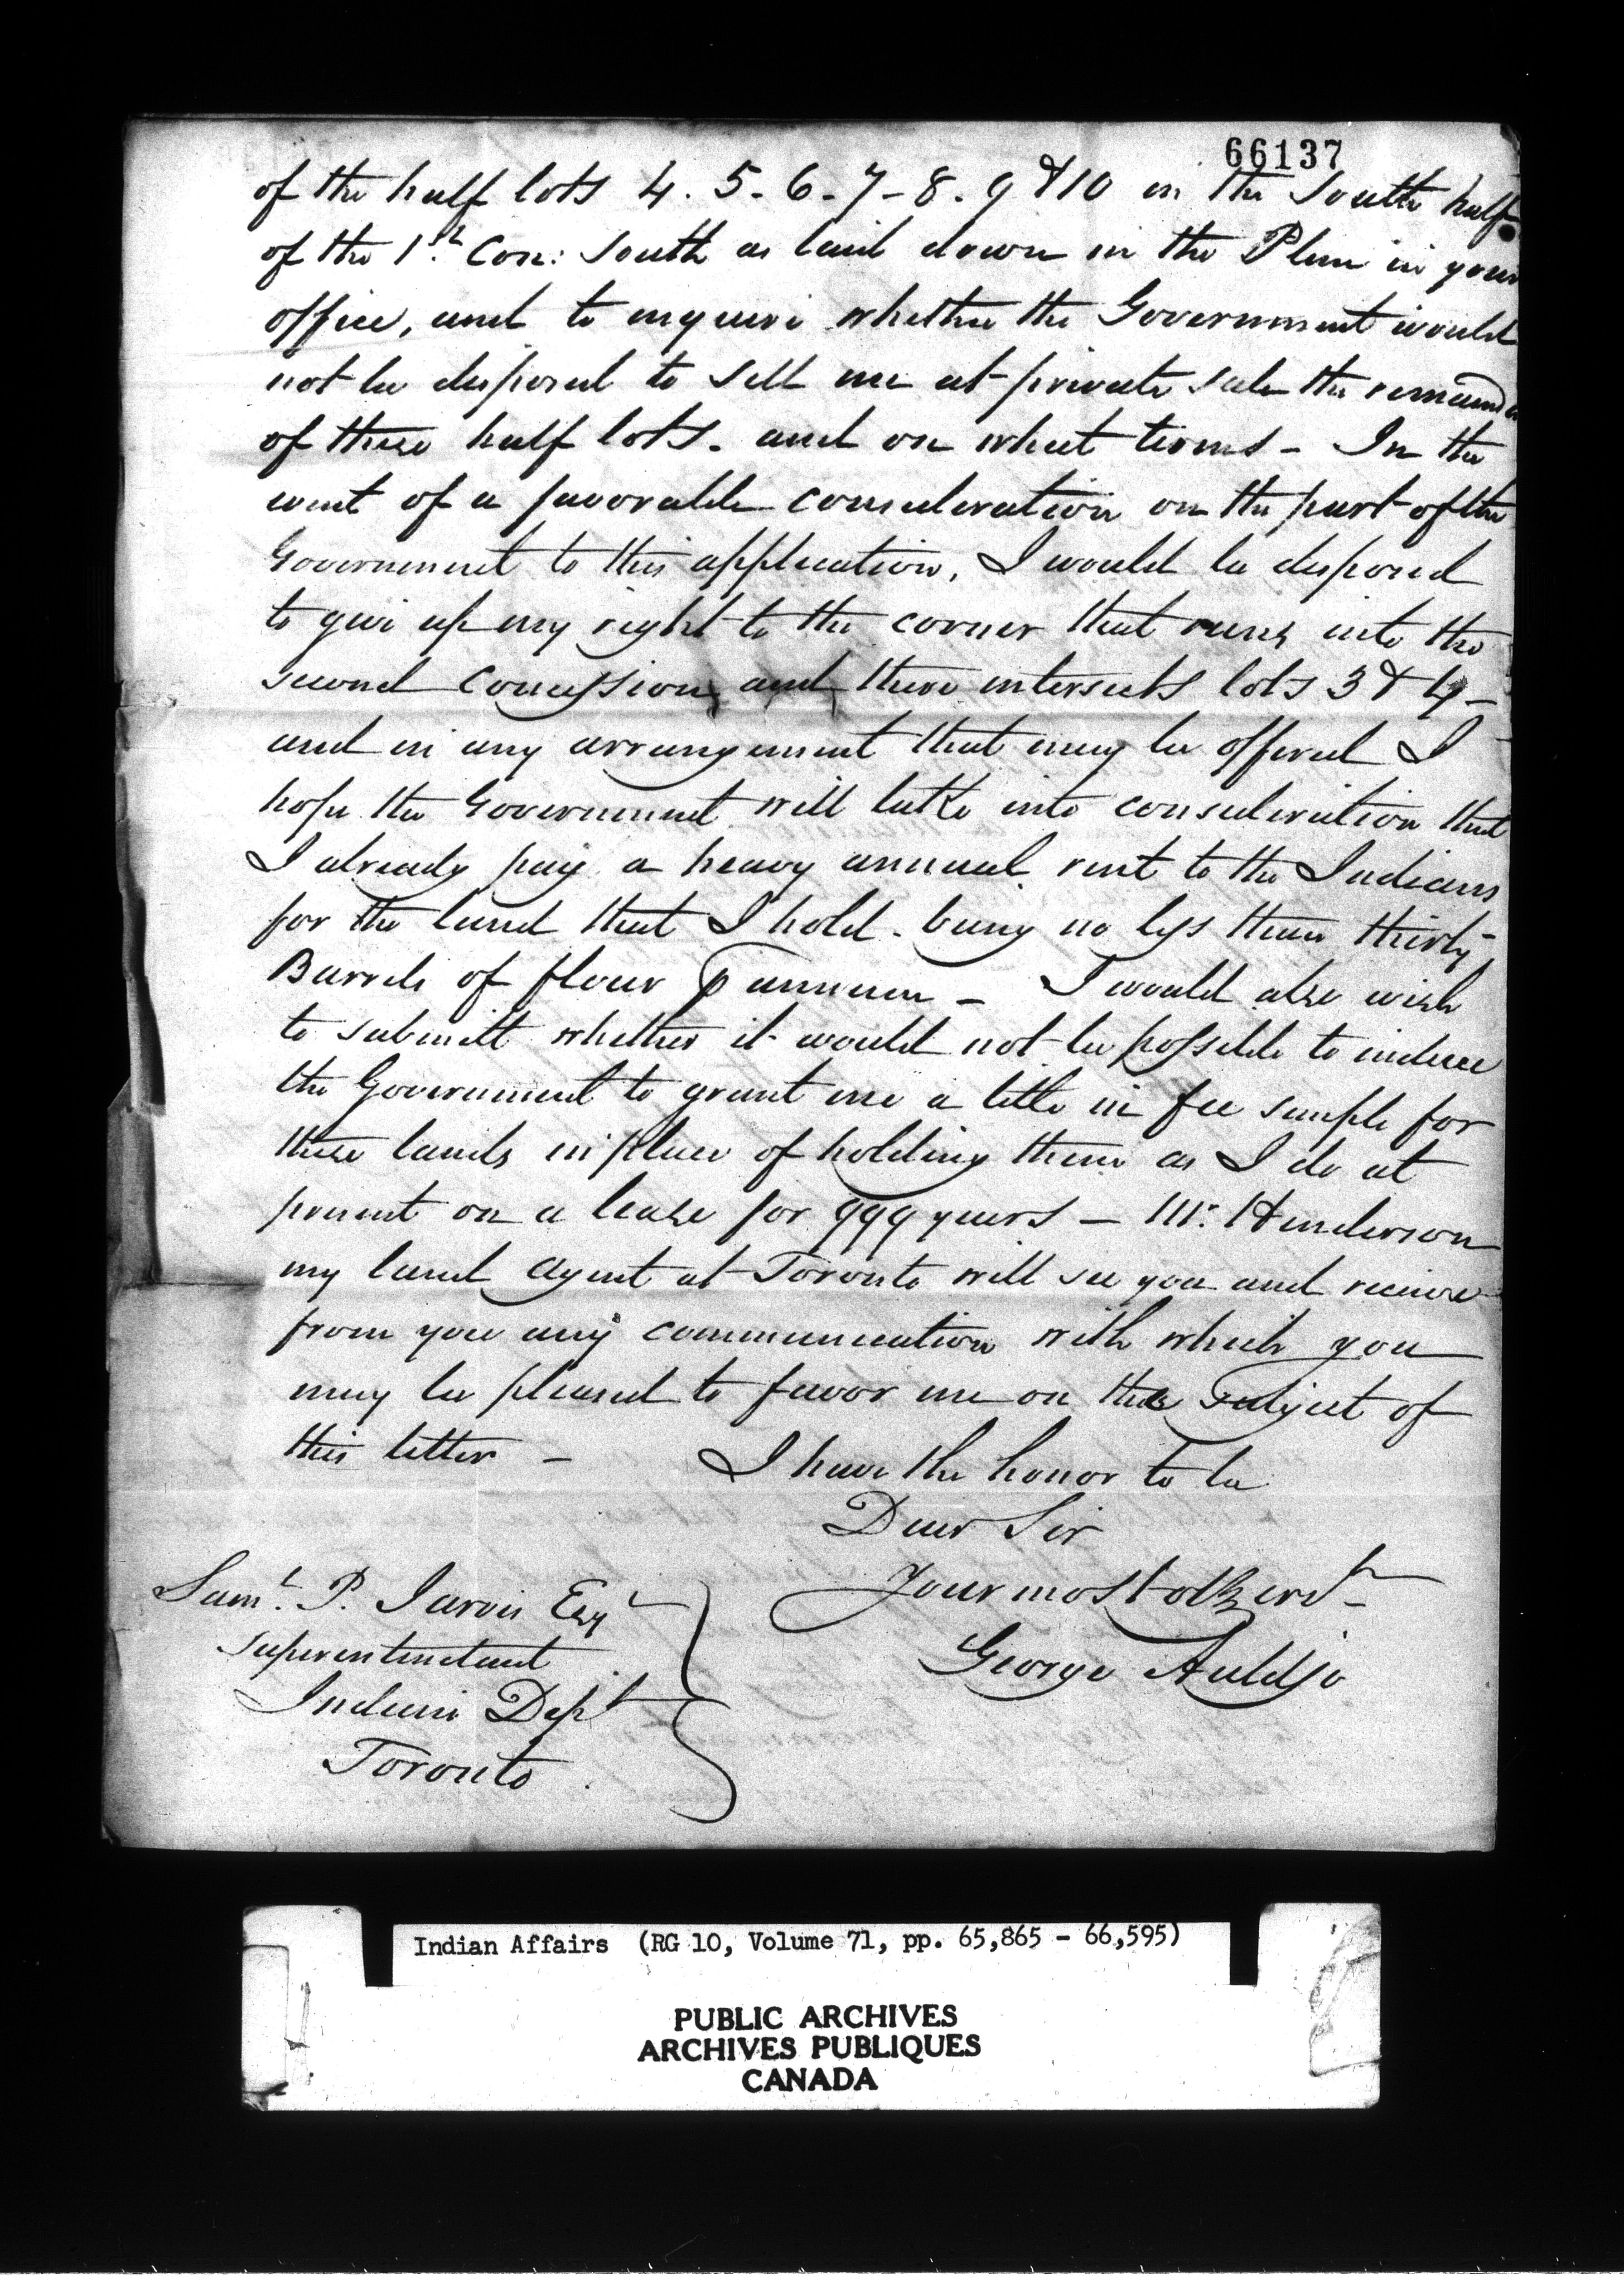 66137
of the half lots 4. 5- 6- 7- 8. 9 & 10 in the South half
of the 1st Con: South as laid down in the Plan in your
office, and to enquire whether the Government would
not be disposed to sell me at private sale the remainder
of these half lots. and on what terms - In the
event of a favorable consideration on the part of the
Government to this application, I would be disposed
to give up my right to the corner that runs into the
second Concession, and there intersects lots 3 & 4 -
and in any arrangement that may be offered I
hope the Government will take into consideration that
I already pay a heavy annual rent to the Indians
for the land that I hold - being no less than thirty
Barrels of flour p annum - I would also wish
to submitt whether it would not be possible to induce
the Government to grant me a title in fee simple for
these lands in place of holding them as I do at
present on a lease for 999 years - Mr. Henderson
my land agent at Toronto will see you and receive
from you any communication with which you
may be pleased to favor me on the Subject of
this letter - I have the honor to be
Dear Sir
Your most ob Servt
George Auldjo
Saml. P. Jarvis Esqr
Superintendant
Indian Dept
Toronto
Indian Affairs (RG 10, Volume 71, pp. 65,865 - 66,595)
PUBLIC ARCHIVES
ARCHIVES PUBLIQUES
CANADA